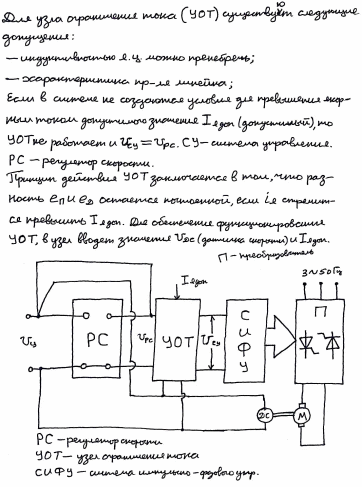 Для узла ограничения тока (УОТ) существуют следующие
допущения:
— индуктивностью я.ц. можно пренебречь;
— характеристика пр-ля линейна;
Если в системе не создаются условия для превышения якор-
ным током допустимого значения Iядоп (допустимый), то
УОТ не работает и Uсу = Uрс. СУ – система управления.
РС – регулятор скорости.
Принцип действия УОТ заключается в том, что раз-
ность eп и eд остаётся постоянной, если iя стремит-
ся превысить Iядоп. Для обеспечения функционирования
УОТ, в узел вводят значения Uдс (датчика скорости) и Iядоп.
П – преобразователь
3~50Гц
Iядоп
РС
Uрс
УОТ
Uсу
СИФУ
П
ДС
М
РС – регулятор скорости
УОТ – узел ограничения тока
СИФУ – система импульсно-фазового упр.